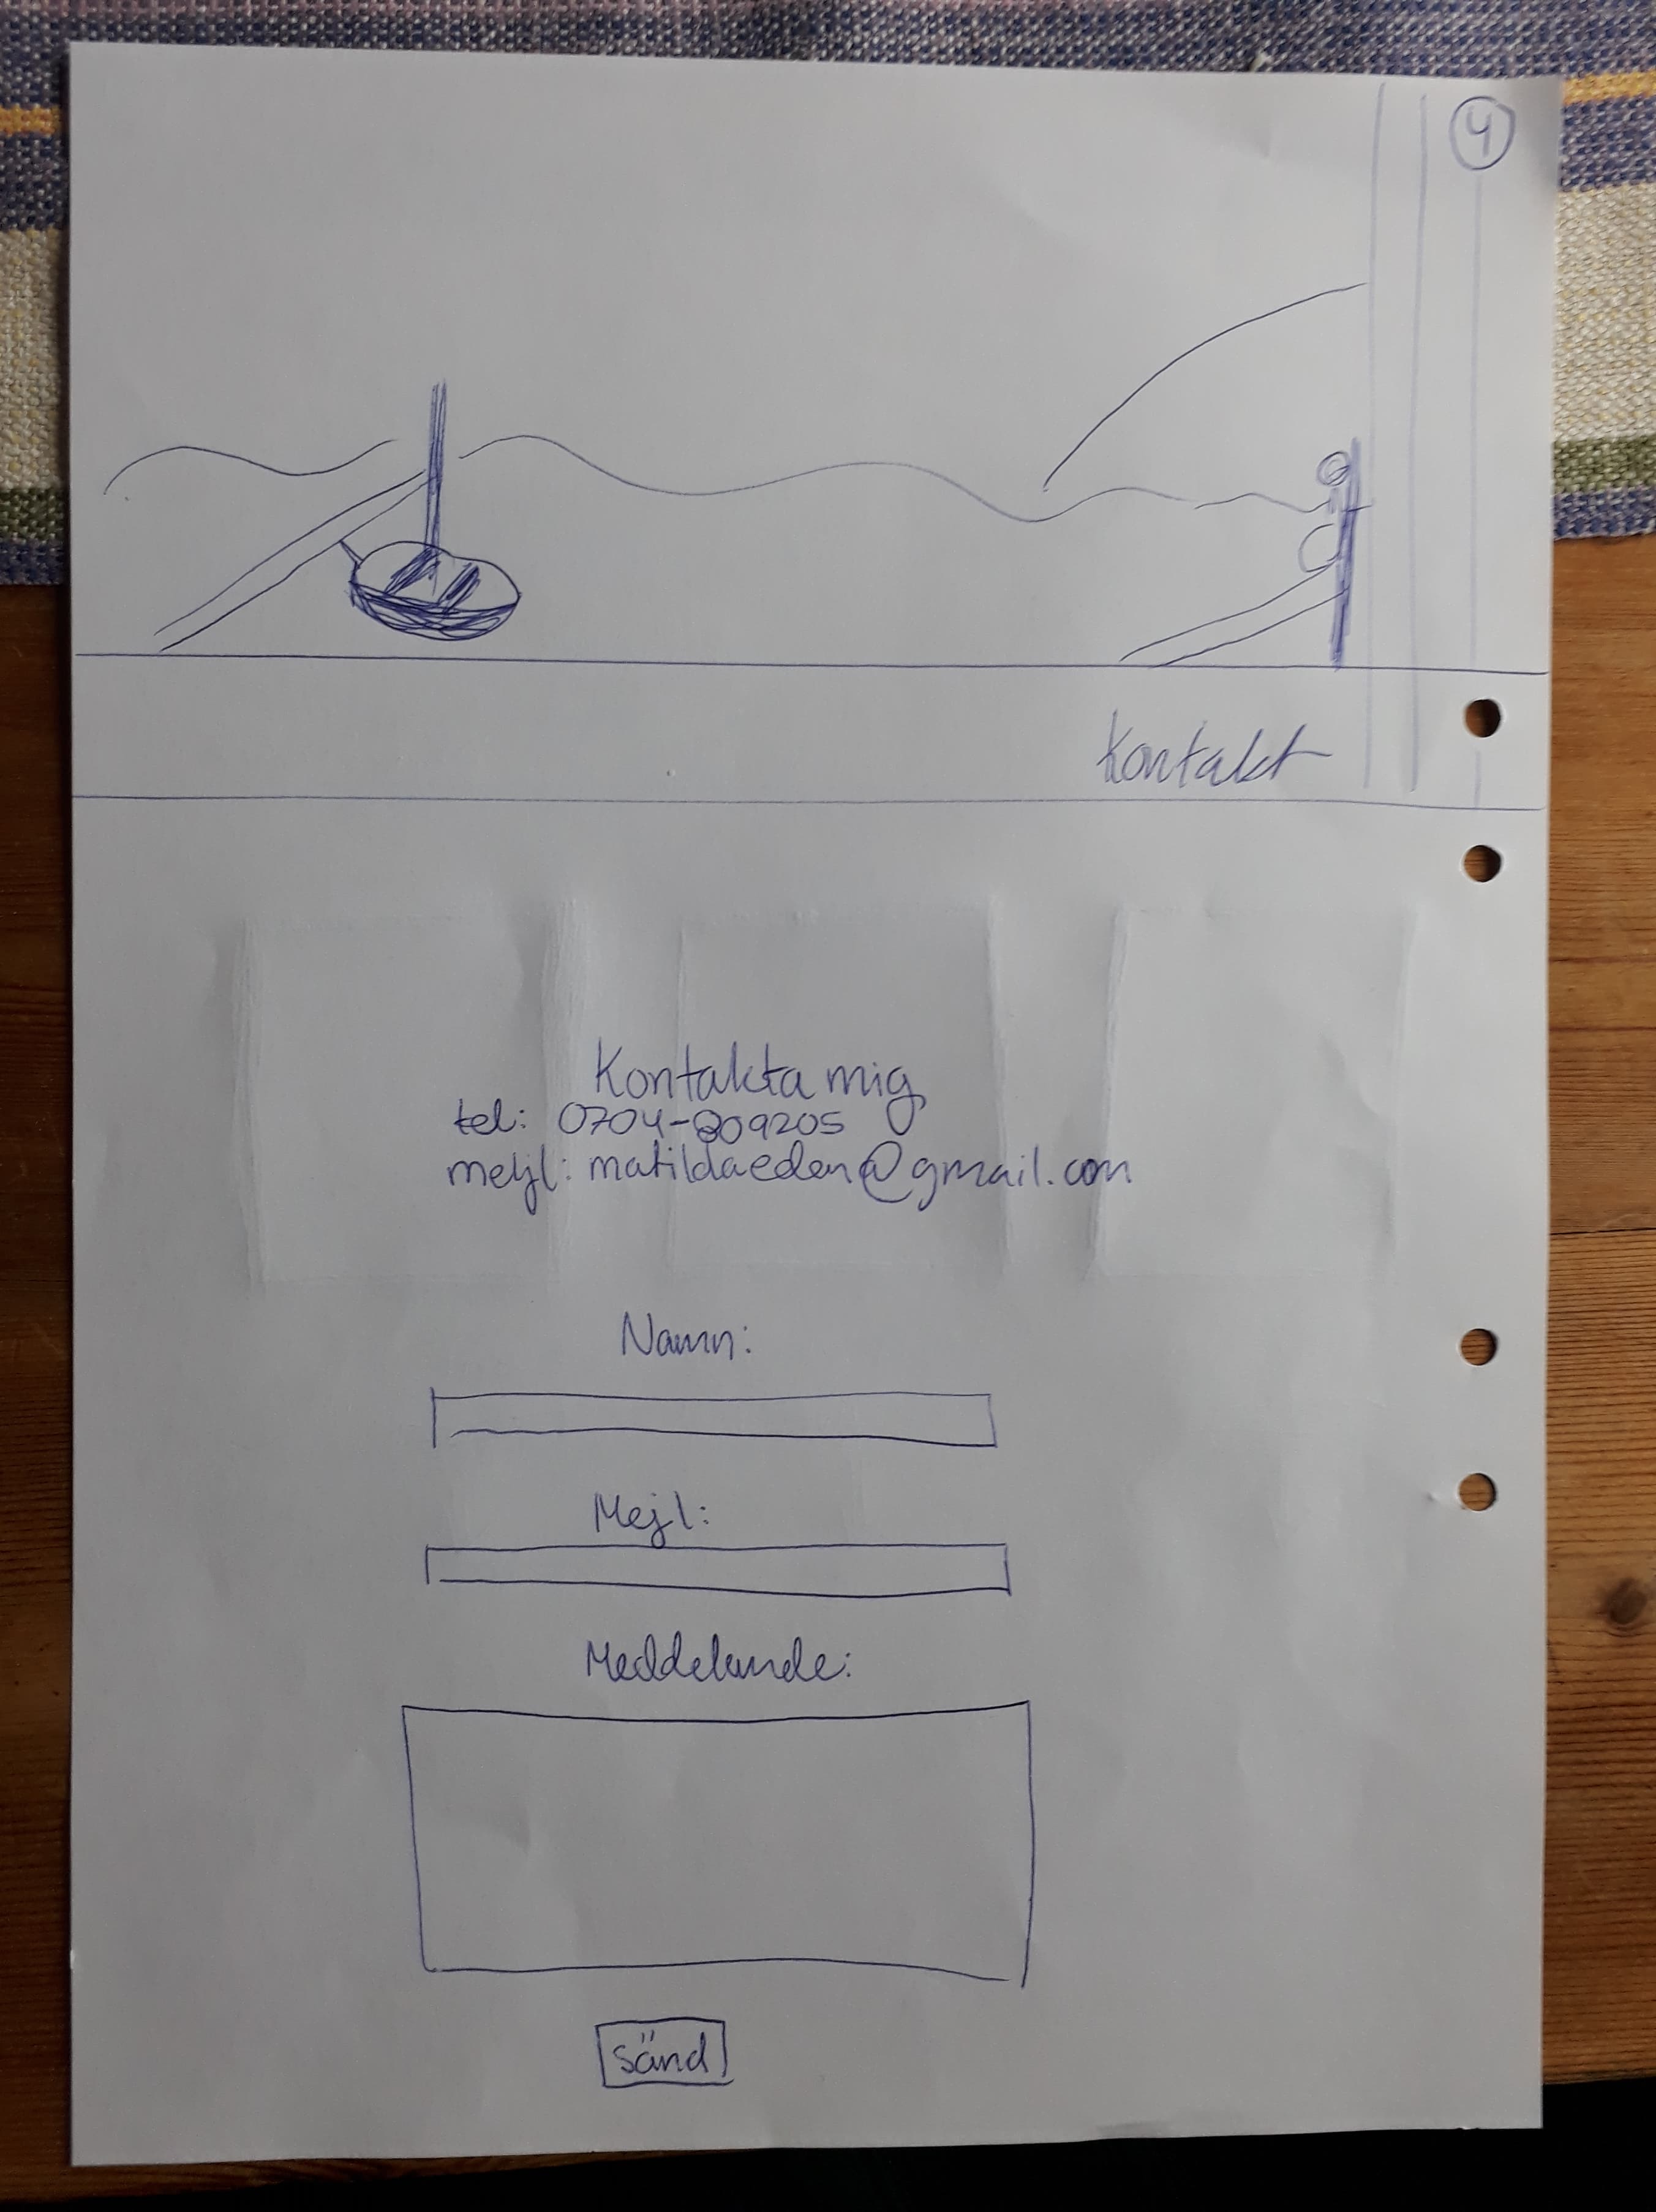 4
Kontakt
Kontakta mig
tel: 0704-809205
mejl: matildaeden@gmail.com
Namn:
Mejl:
Meddelande:
sänd